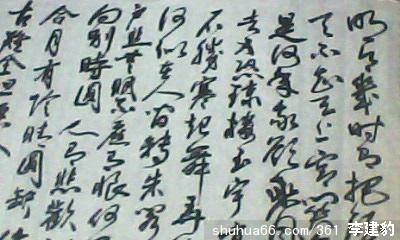 明月幾时有把
天不知天上宫阙
是何年我欲乘风
去又恐琼楼玉宇
不勝寒起舞弄
何似在人间转朱阁
户照無眠不应有恨何
向别時圆 人有悲歡
合月有阴晴圆缺
古难全但愿人
shuhua66.com 361 李建豹